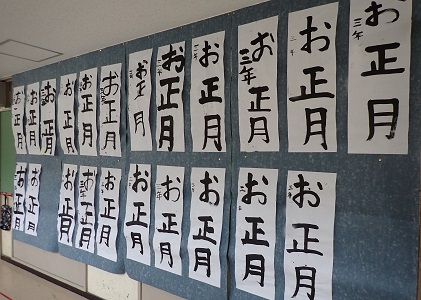 お正月
三年
お正月
お正月
三年
お正月
お正月
お正月
お正月
お正月
お正月
お正月
お正月
お正月
お正月
三年
お正月
お正月
お正月
お正月
お正月
お正月
三年
お正月
お正月
お正月